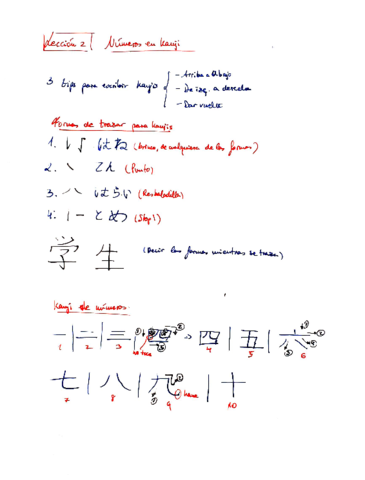 Lección 2 | Números en Kanji
3 tips para escribir kanjis
- Arriba a abajo
- De izq. a derecha
- Dar vuelta
Formas de trazar para kanjis
1. はね (Arroz, de cualquiera de las formas)
2. てん (Punto)
3. はらい (Resbaladilla)
4. とめ (Stop!)
学 生 (Decir las formas mientras se traza)
Kanji de números
一 | 二 | 三 | 四 | 五 | 六
1 2 3 no toca 4 5 6
七 | 八 | 九 | 十
7 8 9 hane 10